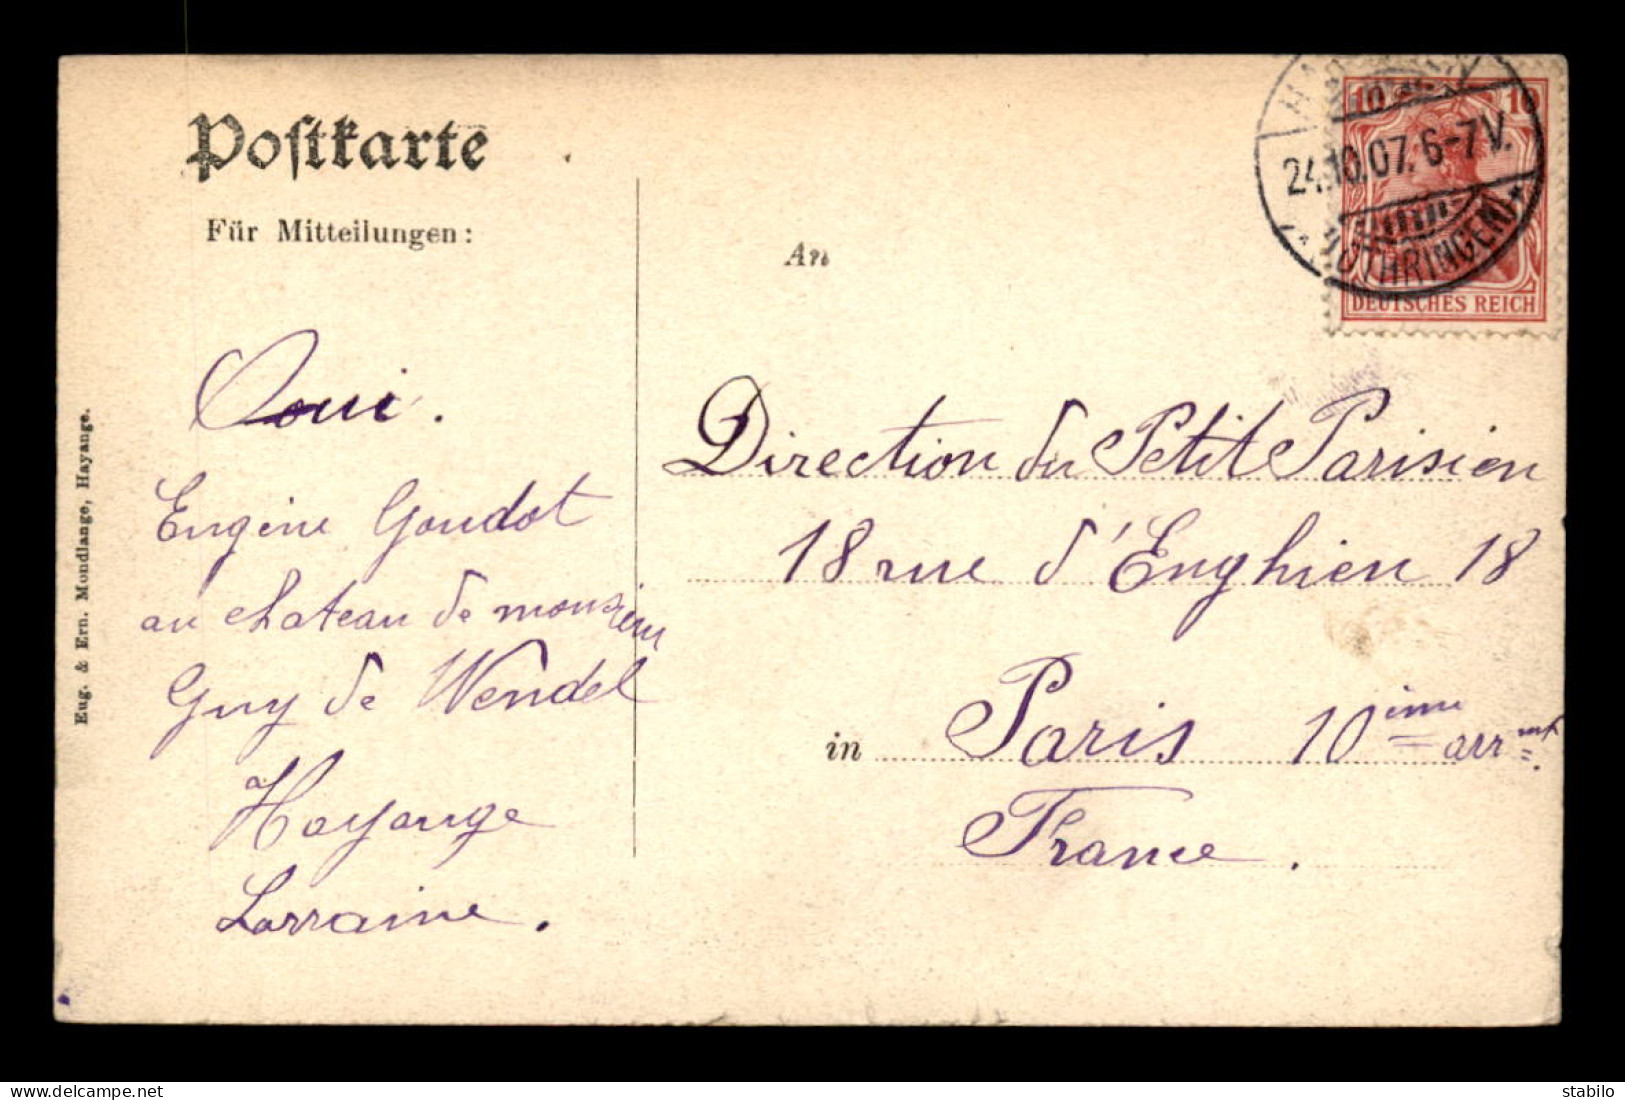 Postkarte
Für Mitteilungen:
Oui.
Eugène Goudot
au chateau de monsieur
Guy de Wendel
Hayange
Lorraine.
Eug. & Ern. Mondlange, Hayange.
An
Direction du Petit Parisien
18 rue d'Enghien 18
in Paris 10ème arrmt.
France.
10 10
24.10.07. 6-7V.
(LOTHRINGEN)
DEUTSCHES REICH
stabilo
www.delcampe.net